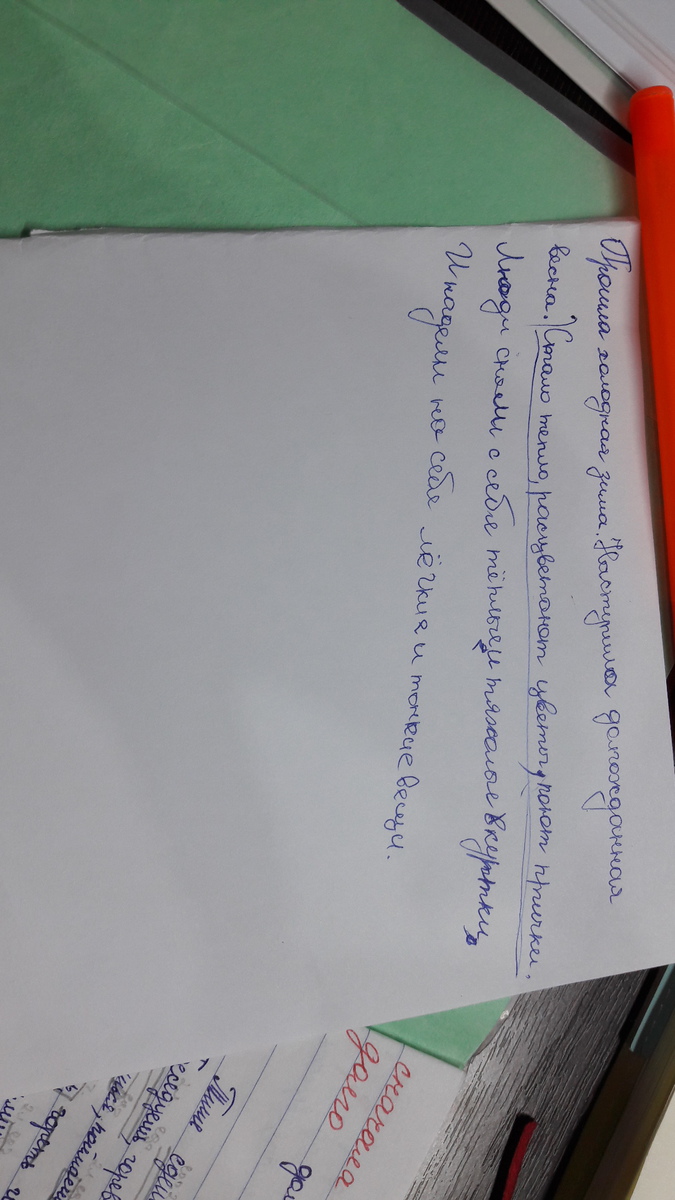 Прошла холодная зима. Наступила долгожданная
весна. Стало тепло, расцветают цветы, поют птички.
Люди сняли с себя тёплые и тяжолые куртки.
И надели на себя лёгкия и тонкие вещи.
скакала
долго